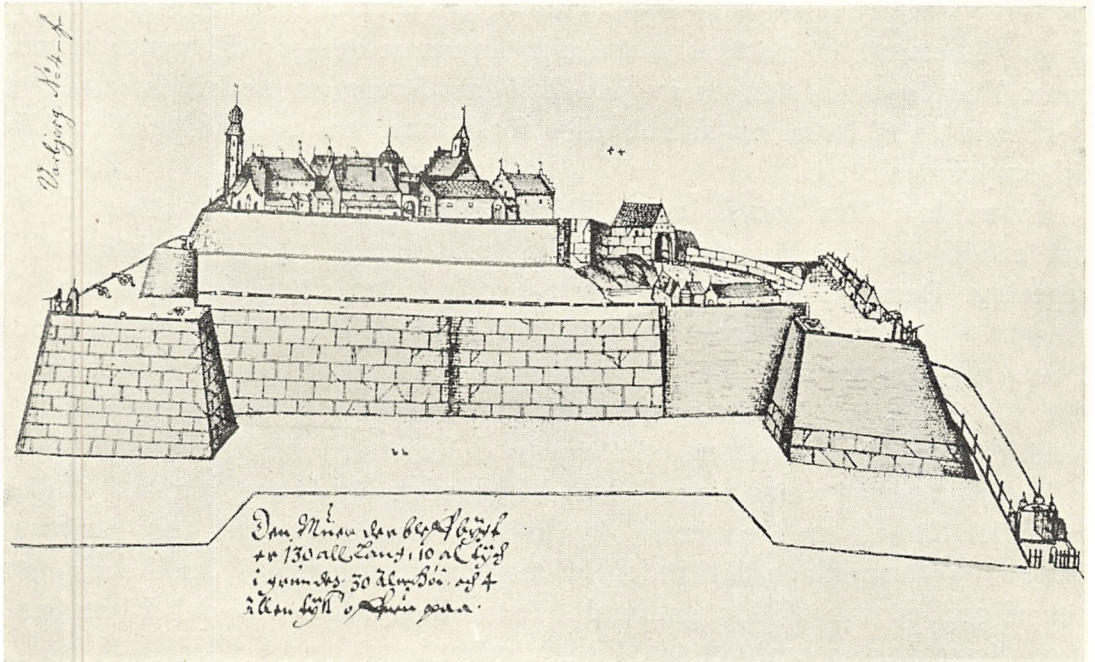 Varbjerg No 4-f
Den Muer der bleff bygt
er 130 all lang, 10 al tyck
i grunden 30 Alen höi och 4
Allen tyk offuen paa.